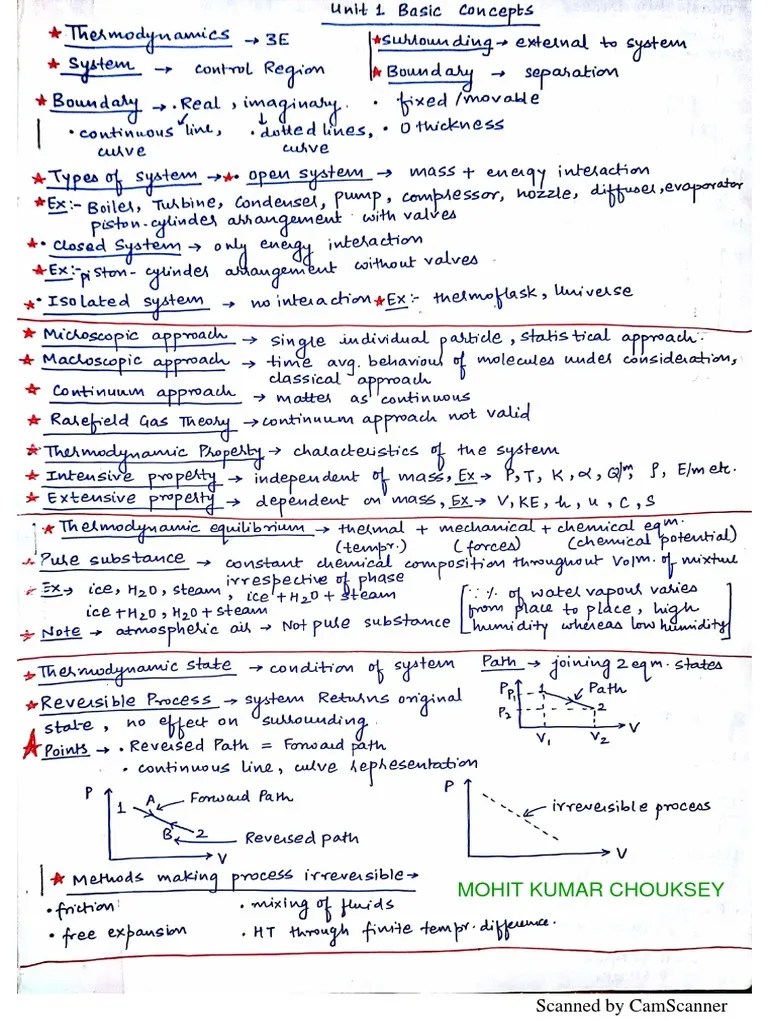 Unit 1 Basic Concepts
★ Thermodynamics → 3E
★ System → control Region
★ Surrounding → external to system
★ Boundary → separation
★ Boundary → • Real, imaginary. • fixed/movable
• continuous line, • dotted lines, • 0 thickness
curve curve
★ Types of system → ★ • open system → mass + energy interaction
★ Ex:- Boiler, Turbine, Condenser, pump, compressor, nozzle, diffuser, evaporator
piston-cylinder arrangement with valves
★ • Closed System → only energy interaction
★ Ex:- piston-cylinder arrangement without valves.
★ • Isolated system → no interaction ★ Ex:- thermoflask, Universe
★ Microscopic approach → single individual particle, statistical approach.
★ Macroscopic approach → time avg. behaviour of molecules under consideration,
classical approach
★ Continuum approach → matter as continuous
★ Rarefield Gas Theory → continuum approach not valid
★ Thermodynamic Property → characteristics of the system
★ Intensive property → independent of mass, Ex → P, T, K, α, Q/m, ρ, E/m etc.
★ Extensive property → dependent on mass, Ex → V, KE, h, u, C, S
★ Thermodynamic equilibrium → thermal + mechanical + chemical eqm.
(tempr.) (forces) (chemical potential)
★ Pure substance → constant chemical composition throughout Volm. of mixture
irrespective of phase
★ Ex → ice, H2O, steam, ice + H2O + steam
ice + H2O, H2O + steam
★ Note → atmospheric air → Not pure substance
[∵ % of water vapour varies
from place to place, high
humidity whereas low humidity]
★ Thermodynamic state → condition of system
Path → joining 2 eqm. states
★ Reversible Process → system Returns original
state, no effect on surrounding.
P
P1
1
Path
P2
2
V1 V2 V
★ Points → • Reversed Path = Forward path
• continuous line, curve representation
P
1 A Forward Path
B 2 Reversed path
V
P
irreversible process
V
★ Methods making process irreversible →
• friction • mixing of fluids
• free expansion • HT through finite tempr. difference.
MOHIT KUMAR CHOUKSEY
Scanned by CamScanner